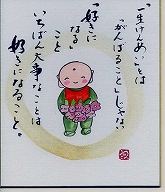 「一生けんめい」とは
「がんばること」じゃない
「好きに
なる」
こと
いちばん大事なことは
好きになること。